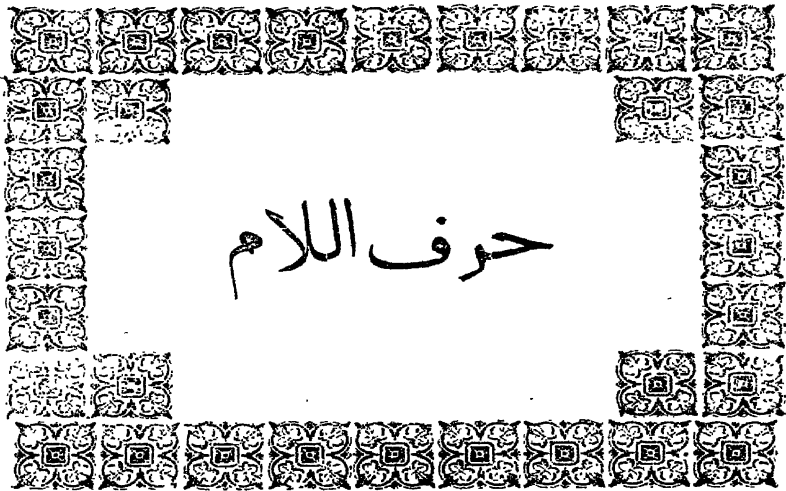 حرف اللام